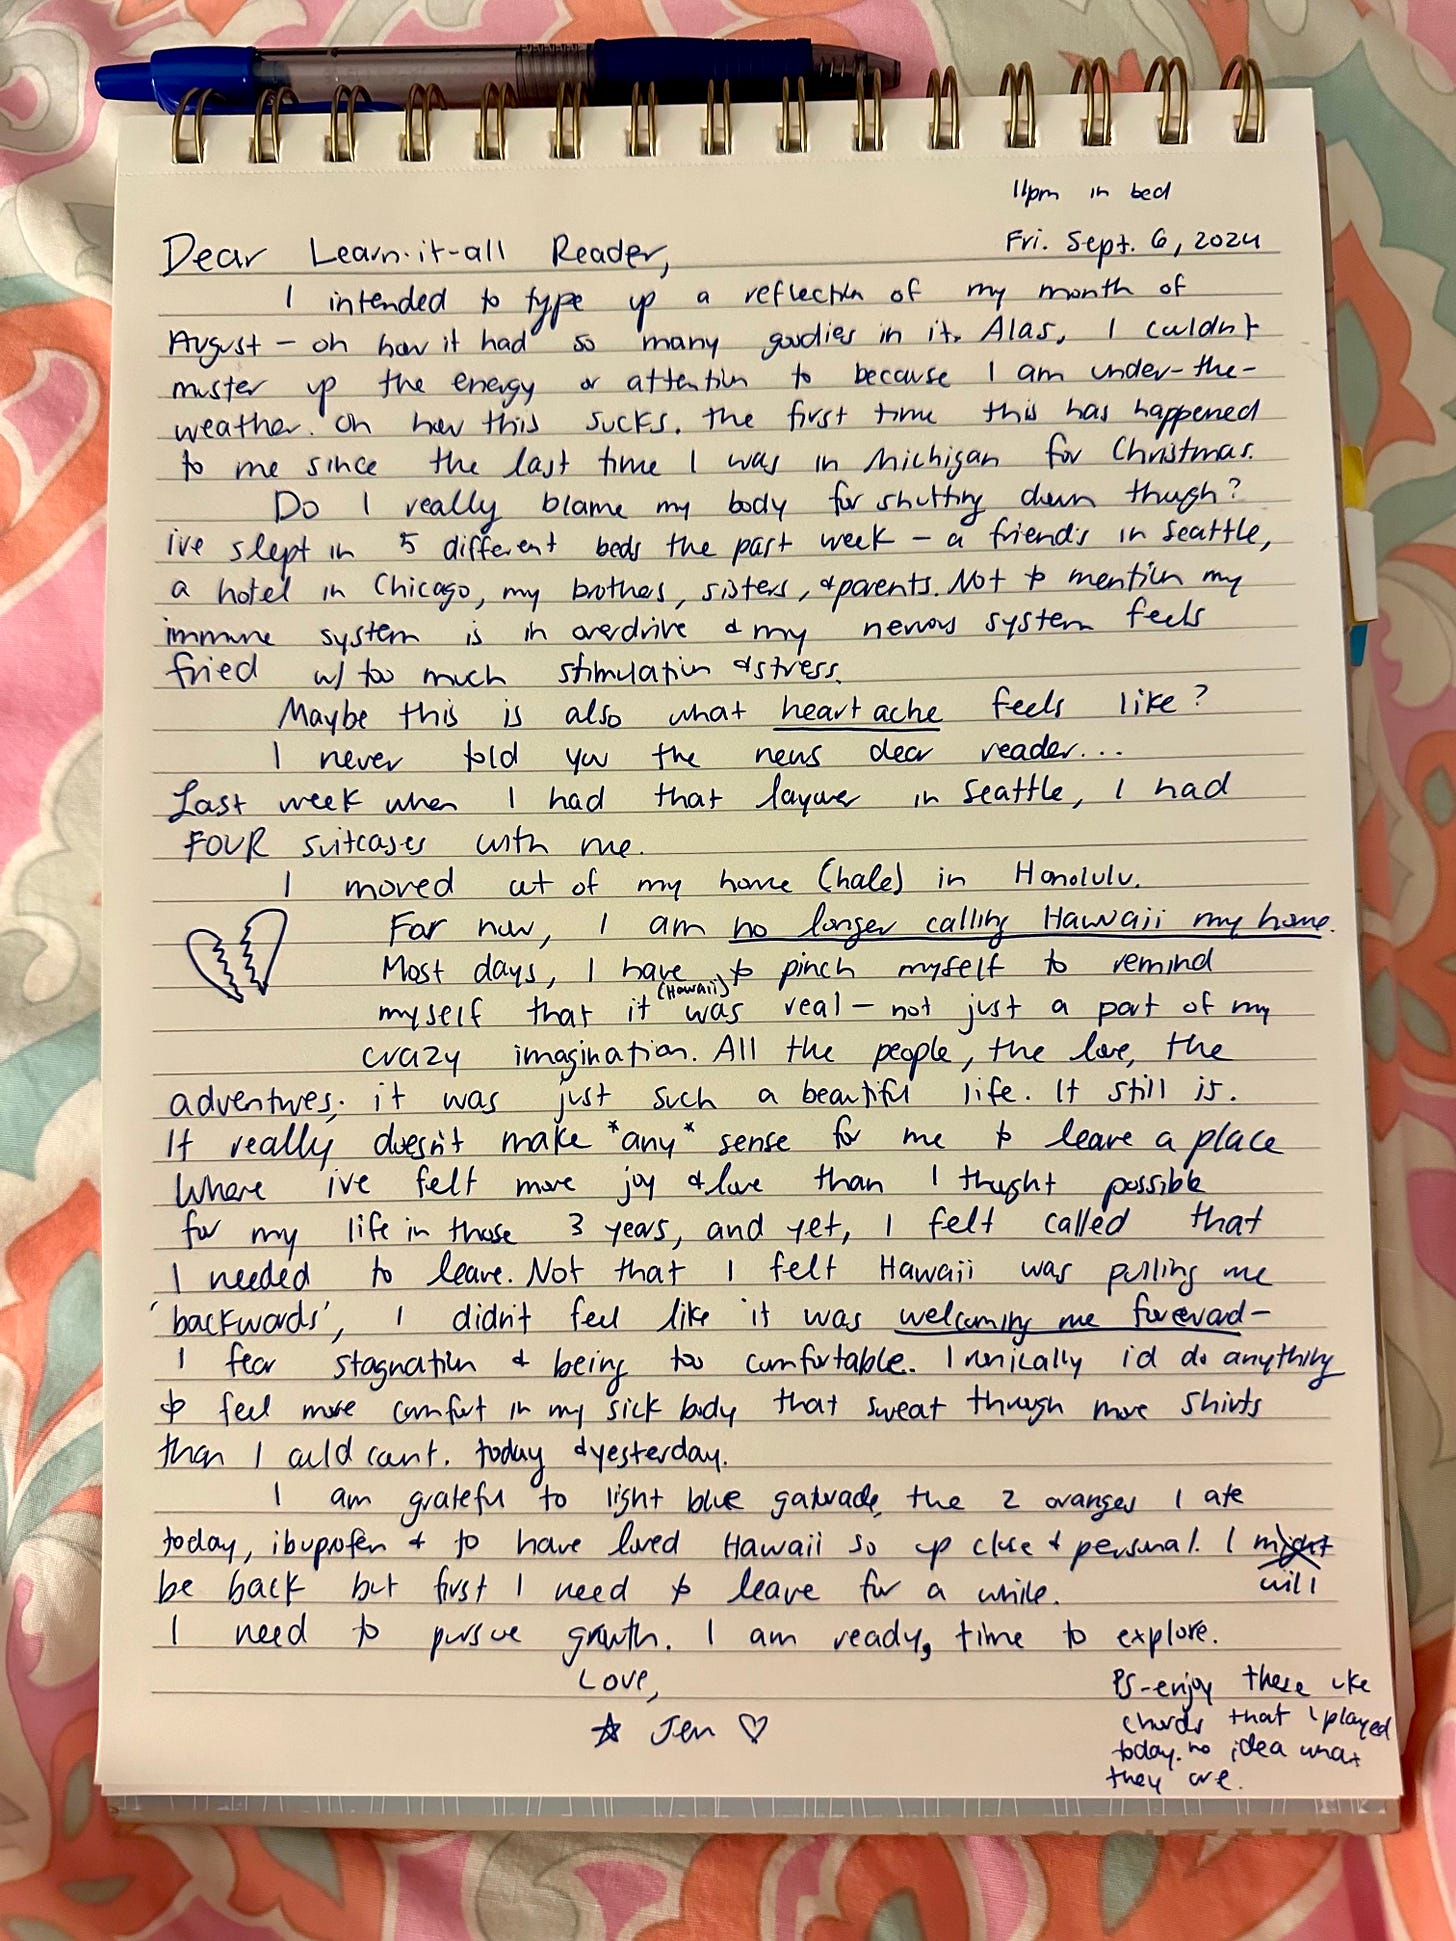 11pm in bed
Fri. Sept. 6, 2024
Dear Learn-it-all Reader,
I intended to type up a reflection of my month of
August – oh how it had so many goodies in it. Alas, I couldn't
muster up the energy or attention to because I am under-the-
weather. Oh how this sucks. The first time this has happened
to me since the last time I was in Michigan for Christmas.
Do I really blame my body for shutting down though?
i've slept in 5 different beds the past week – a friend's in Seattle,
a hotel in Chicago, my brothers, sisters, & parents. Not to mention my
immune system is in overdrive & my nervous system feels
fried w/ too much stimulation & stress.
Maybe this is also what heart ache feels like?
I never told you the news dear reader...
Last week when I had that layover in Seattle, I had
FOUR suitcases with me.
I moved out of my home (hale) in Honolulu.
For now, I am no longer calling Hawaii my home.
Most days, I have to pinch myself to remind
myself that it (Hawaii) was real – not just a part of my
crazy imagination. All the people, the love, the
adventures; it was just such a beautiful life. It still is.
It really doesn't make *any* sense for me to leave a place
where i've felt more joy & love than I thought possible
for my life in those 3 years, and yet, I felt called that
I needed to leave. Not that I felt Hawaii was pulling me
'backwards', I didn't feel like it was welcoming me foreward –
I fear stagnation & being too comfortable. Ironically i'd do anything
to feel more comfort in my sick body that sweat through more shirts
than I could count. today & yesterday.
I am grateful to light blue gatorade, the 2 oranges I ate
today, ibuprofen & to have loved Hawaii so up close & personal. I might will
be back but first I need to leave for a while.
I need to pursue growth. I am ready, time to explore.
Love,
☆ Jen ♡
PS – enjoy these uke
chords that I played
today. no idea what
they are.